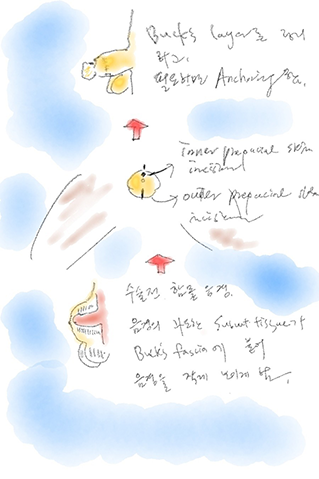 Buck's layer로
하고.
필요하면 Anchoring
Inner prepucial skin
incision
outer prepucial skin
incision
수술전 함몰 음경.
음경의 subcut tissue가
Buck's fascia에 붙어
음경을 작게 보이게 함.